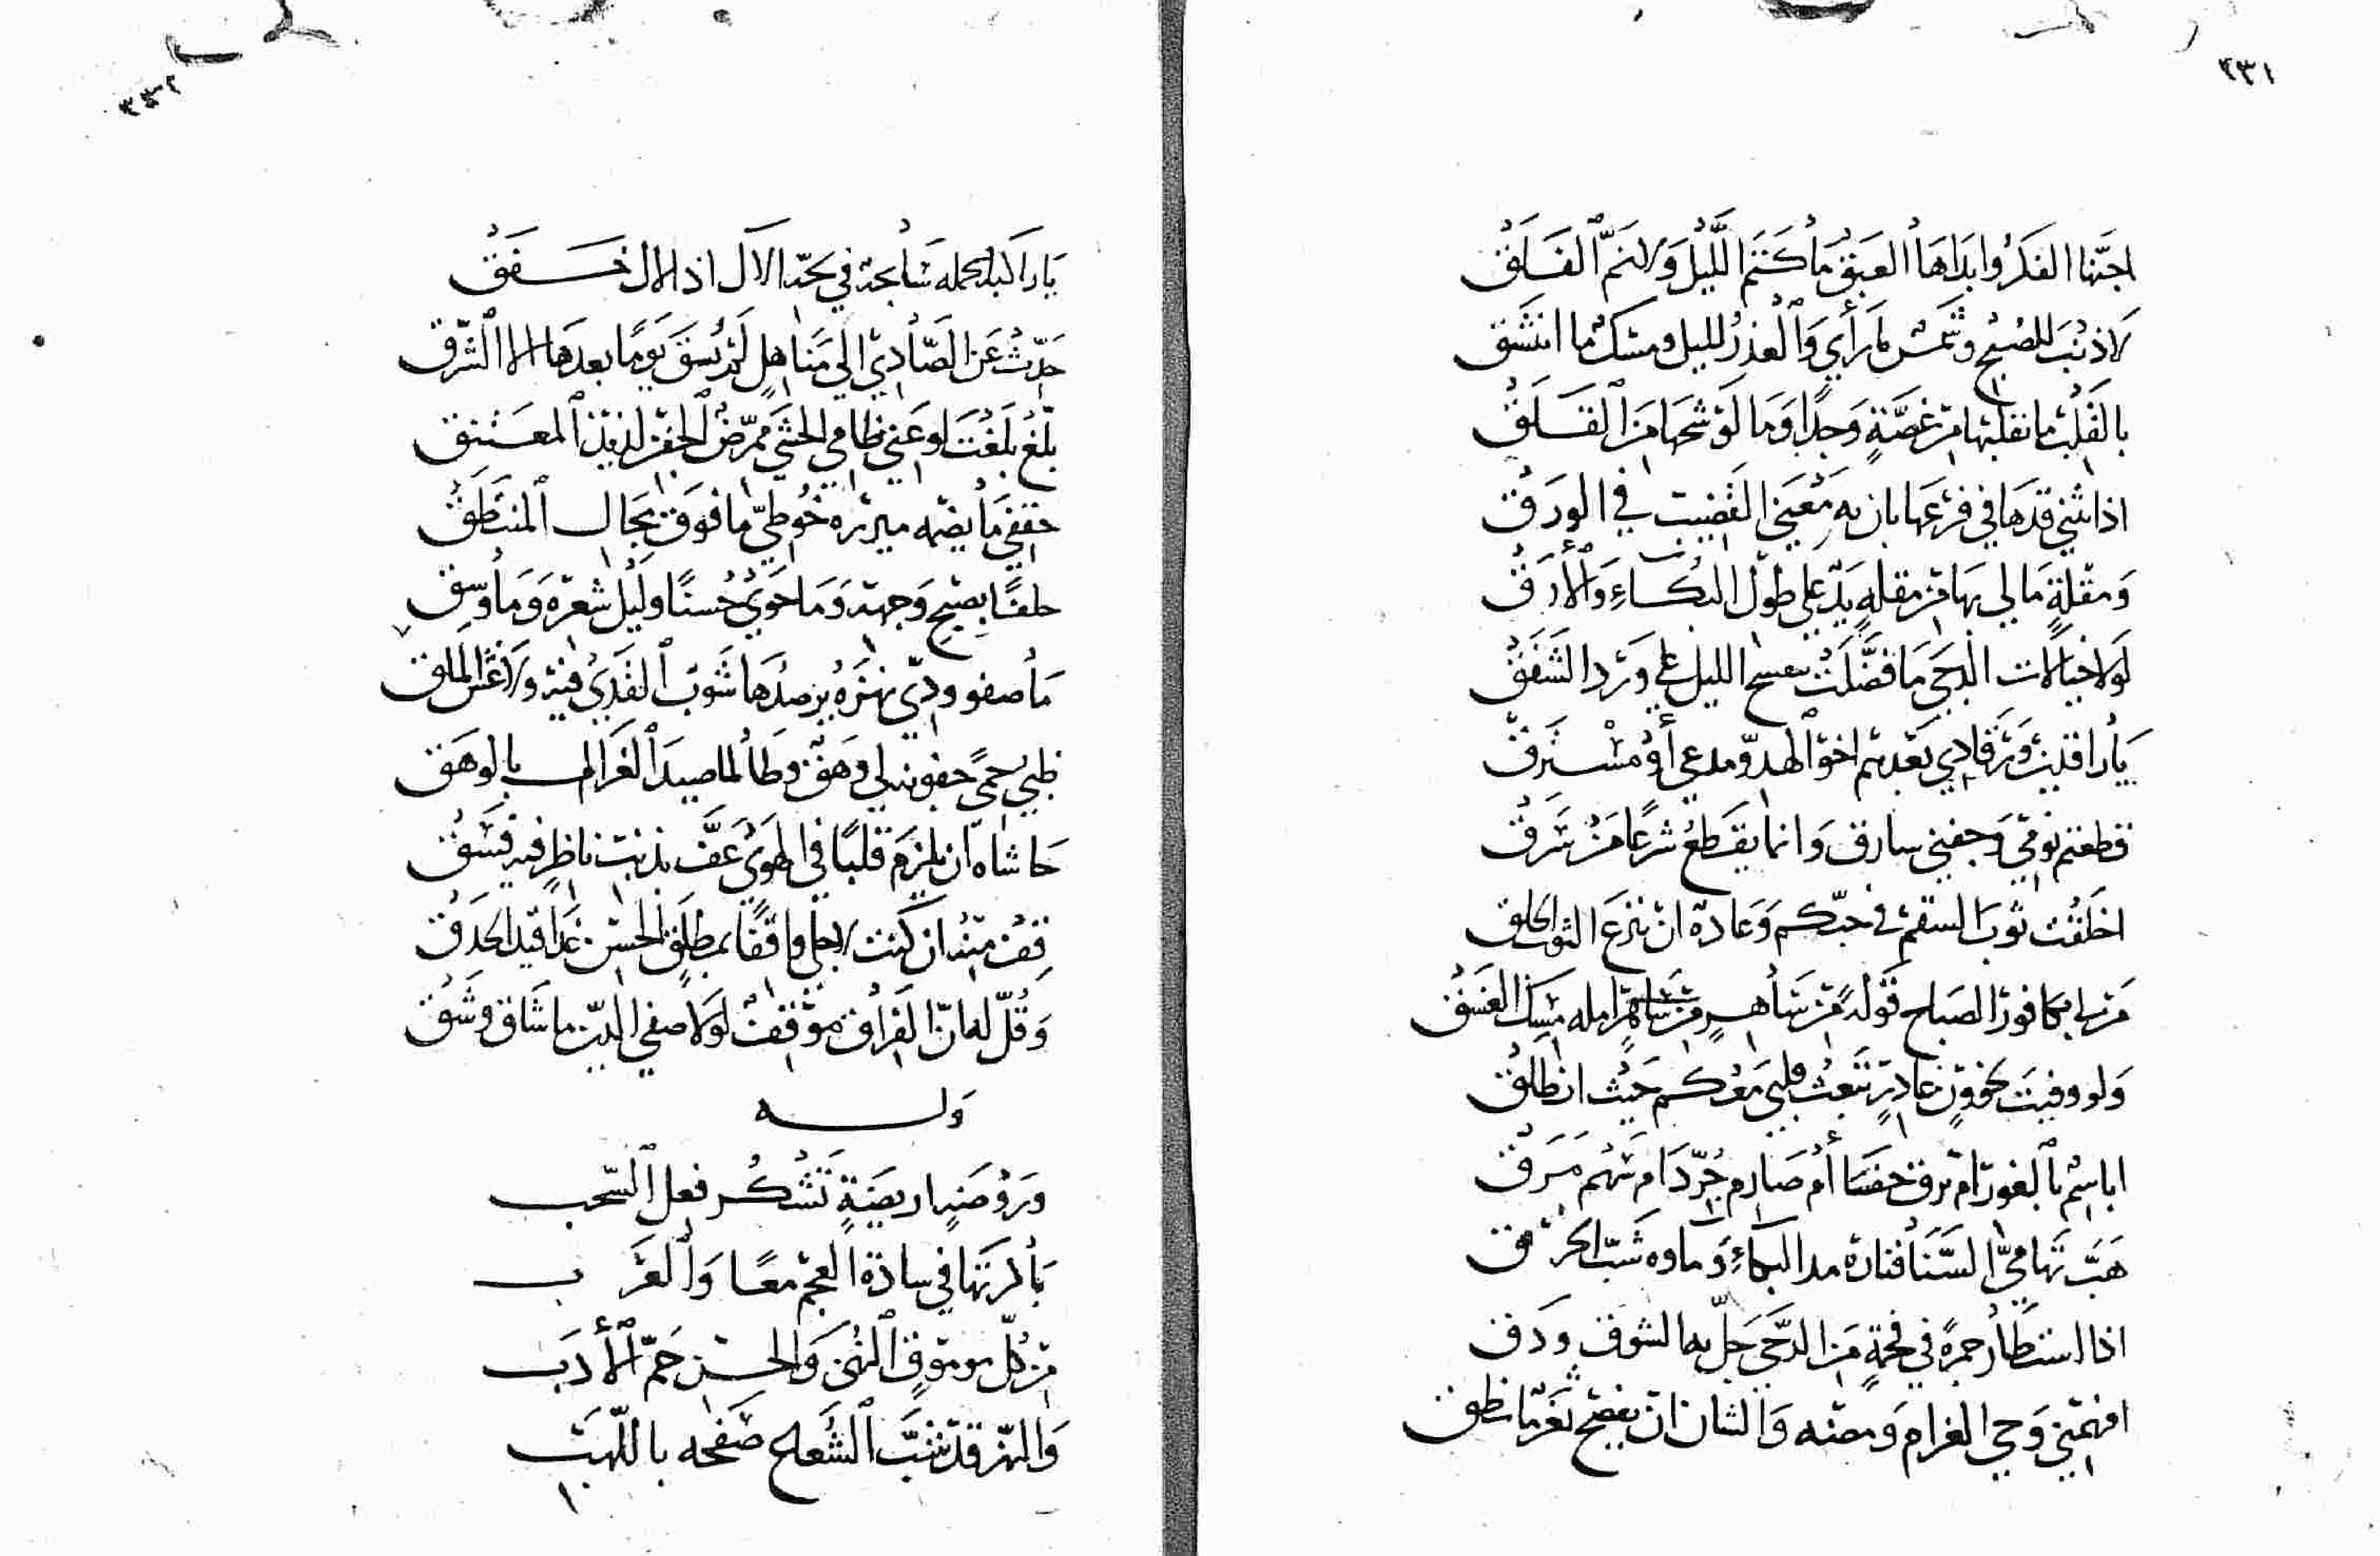 ٢٣١
اجنّها الفكر وابداها العبق ما كتم الليل ولا نمّ الفلق
لا ذنب للصبح وشمس لما رأي والعذر لليل ومسك ما انتشق
بالقلب ما بقلبها من غصّة وجدا وما لوشحها من القلق
اذا نثني قدها في فرعها بان به معني القضيب في الورق
ومقلة ما لي بها من مقلة يد علي طول البكاء والأرق
لولا خيالات الدجي ما فضلت بنفسج الليل علي ورد الشفق
يا راقدين ورقادي بعدهم اخو الهدو مدعي أو مسترق
قطعتم نومي وجفني سارق وانما يقطع شرعا من سرق
اخلقت ثوب السقم في حبكم وعادة ان ينزع الثوب الخلق
من لي بكافور الصباح قولة من ساهر من امله مسك الغسق
ولو وفيت بحقوق غادر تبعت قلبي معكم حيث انطلق
اباسم بالغور ام برق خفا أم صارم جرد ام سهم مرق
هبّ تهامي السنا فناره مدا البكاء وماوه شبّ الحرق
اذا استطار جمره في فحمة من الدجي جلّ به الشوق ودق
افهمني وحي الغرام ومضه والشان ان يفصح ثغر ما نطق
٢٣٢
يا راكبا تحمله سابحة في بحر الآل اذا الال خفق
حدّث عن الصادي الي مناهل لم يسق يوما بعدها الا الشرق
بلّغ بلغت لوعتي ظامي الحشي ممرض الجفن لذيذ المعتنق
حقفي ما يضمه ميزره خوطي ما فوق مجال المنتطق
حلفا بصبح وجهه وما حوي حسنا وليل شعره وما وسق
ما صفو ودي نهزة يرصدها شوب القذي فيه ولا غش الملق
ظبي حمي جفونه لي وهق وطالما صيد الغزال بالوهق
حاشاه ان يلزم قلبا في الهوي عفّ بذنب ناظر فيه فسق
قف منه ان كنت لاجلي واقفا بمطلق الحسن غدا قيد الحدق
وقل له ان الفراق موقف لولا صفي الدين ما شاق وشق
وله
وروضة اريضة تشكر فعل السحب
باكرتها في سادة العجم معا والعرب
من كل موموق النهي والحسن جمّ الأدب
والنهر قد شبّ الشعاع صفحه باللهب